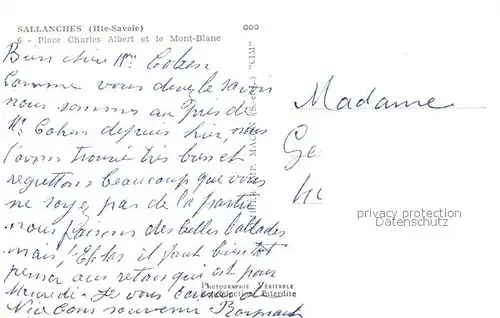 SALLANCHES (Hte-Savoie)
6 - Place Charles Albert et le Mont-Blanc
Bien chère Mme Cohen
Comme vous devez le savoir
nous sommes au près de
Mr Cohen depuis hier, nous
l'avons trouvé très bien et
regrettons beaucoup que vous
ne soyez pas de la partie
nous faisons des belles ballades
mais! Hélas il faut bientot
penser au retour qui est pour
Mercredi - Je vous
souvenir
"CIM"
IMP. MACON
PHOTOGRAPHIE VÉRITABLE
Interdite
Madame
Ge
privacy protection
Datenschutz